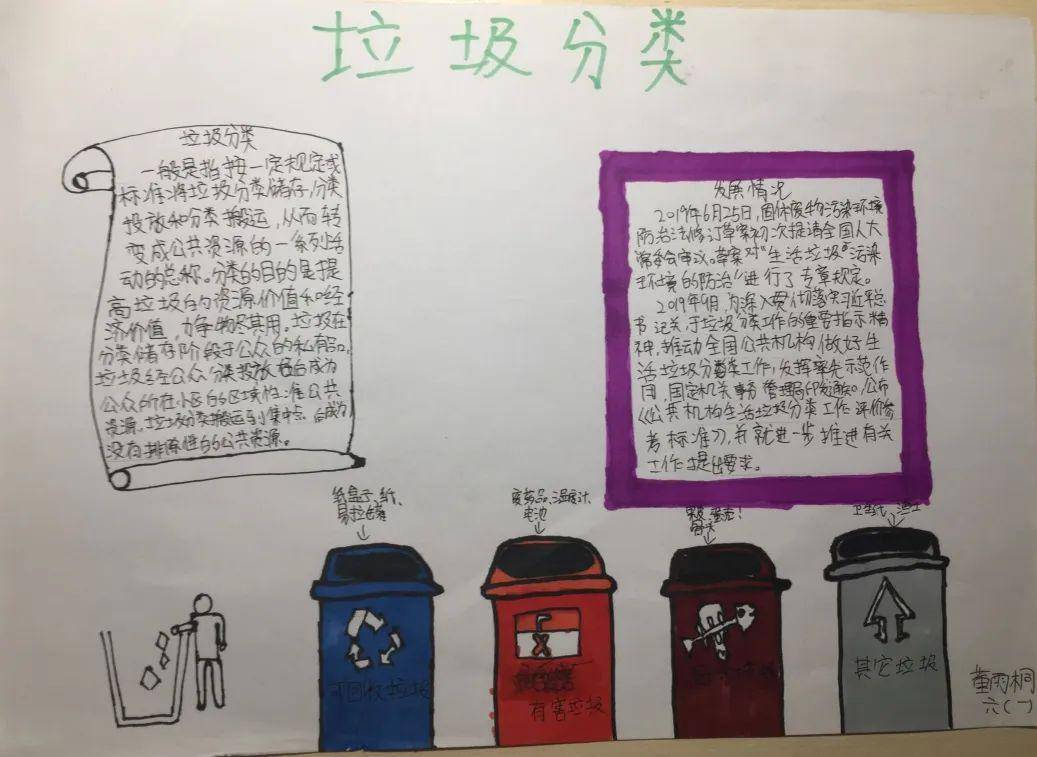 垃圾分类
垃圾分类
一般是指按一定规定或
标准将垃圾分类储存,分类
投放和分类搬运,从而转
变成公共资源的一系列活
动的总称。分类的目的是提
高垃圾的资源价值和经
济价值,力争物尽其用。垃圾在
分类储存阶段于公众的私有品,
垃圾经公众分类投放后成为
公众所在小区的区域性准公共
资源,垃圾分类搬运到集中点后成为
没有排除性的公共资源。
发展情况
2019年6月25日,固体废物污染环境
防治法修订草案初次提请全国人大
常委会审议。草案对“生活垃圾污染
环境的防治”进行了专章规定。
2019年9月,为深入贯彻落实习近平总
书记关于垃圾分类工作的重要指示精
神,推动全国公共机构做好生
活垃圾分类工作,发挥率先示范作
用,国家机关事务管理局印发通知,公布
《公共机构生活垃圾分类工作评价参
考标准》,并就进一步推进有关
工作提出要求。
纸盒子、纸、
易拉罐
废药品、温度计、
电池
果皮、蛋壳!
骨头
可回收垃圾
有害垃圾
其它垃圾
董雨桐
六(一)